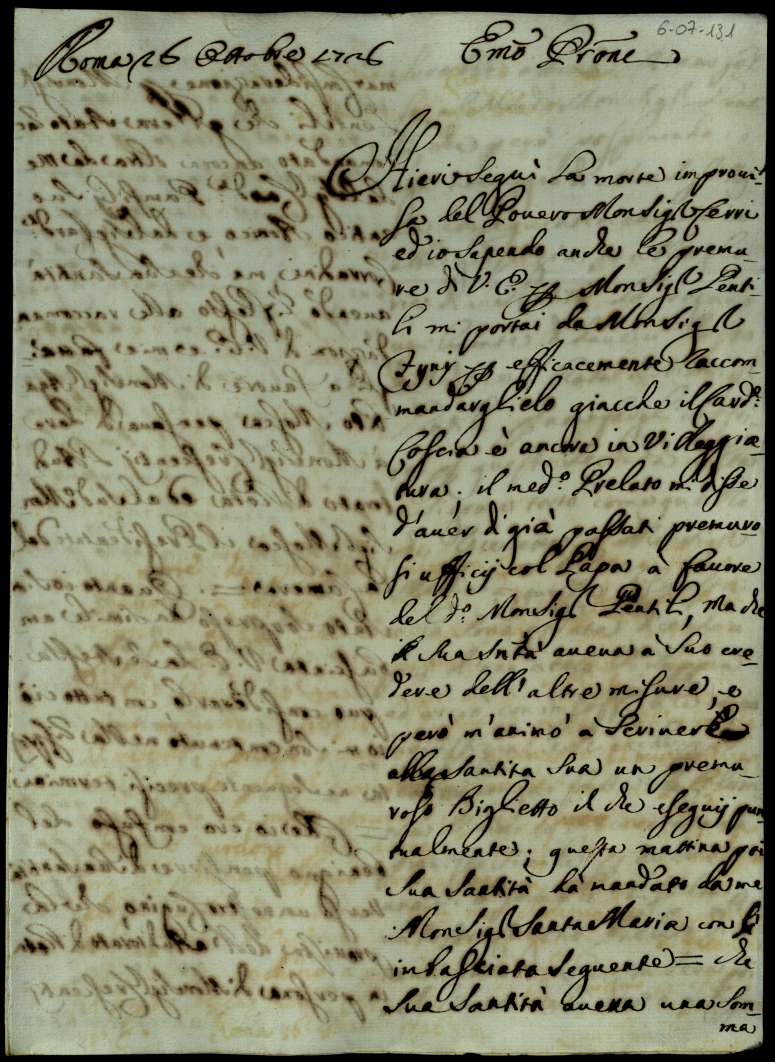 6-07-131
Roma 26 Ottobre 1726 Emo Prone
Hieri seguì la morte improui-
sa del Pouero Monsigr Cerri
ed io sapendo anche le premu-
re di V. E. per Monsigr Genti-
li mi portai da Monsigr
Fynÿ per efficacemente raccom-
mandarglielo giacche il Card.
Coscia è ancora in Villeggia-
tura. il medo. Prelato mi disse
d'auer di già passati premuro-
si ufficij col Papa à fauore
del do. Monsigr Gentili, ma che
Sua Sntà aueua à suo cre-
dere dell'altre misure, e
però m'animò à scriuere
alla Santita Sua un premu-
roso Biglietto il che eseguij pun-
tualmente; questa mattina poi
Sua Santità hà mandato da me
Monsigr Santa Maria con l'
inbasciata seguente = che
Sua Santità aueua una som-
ma